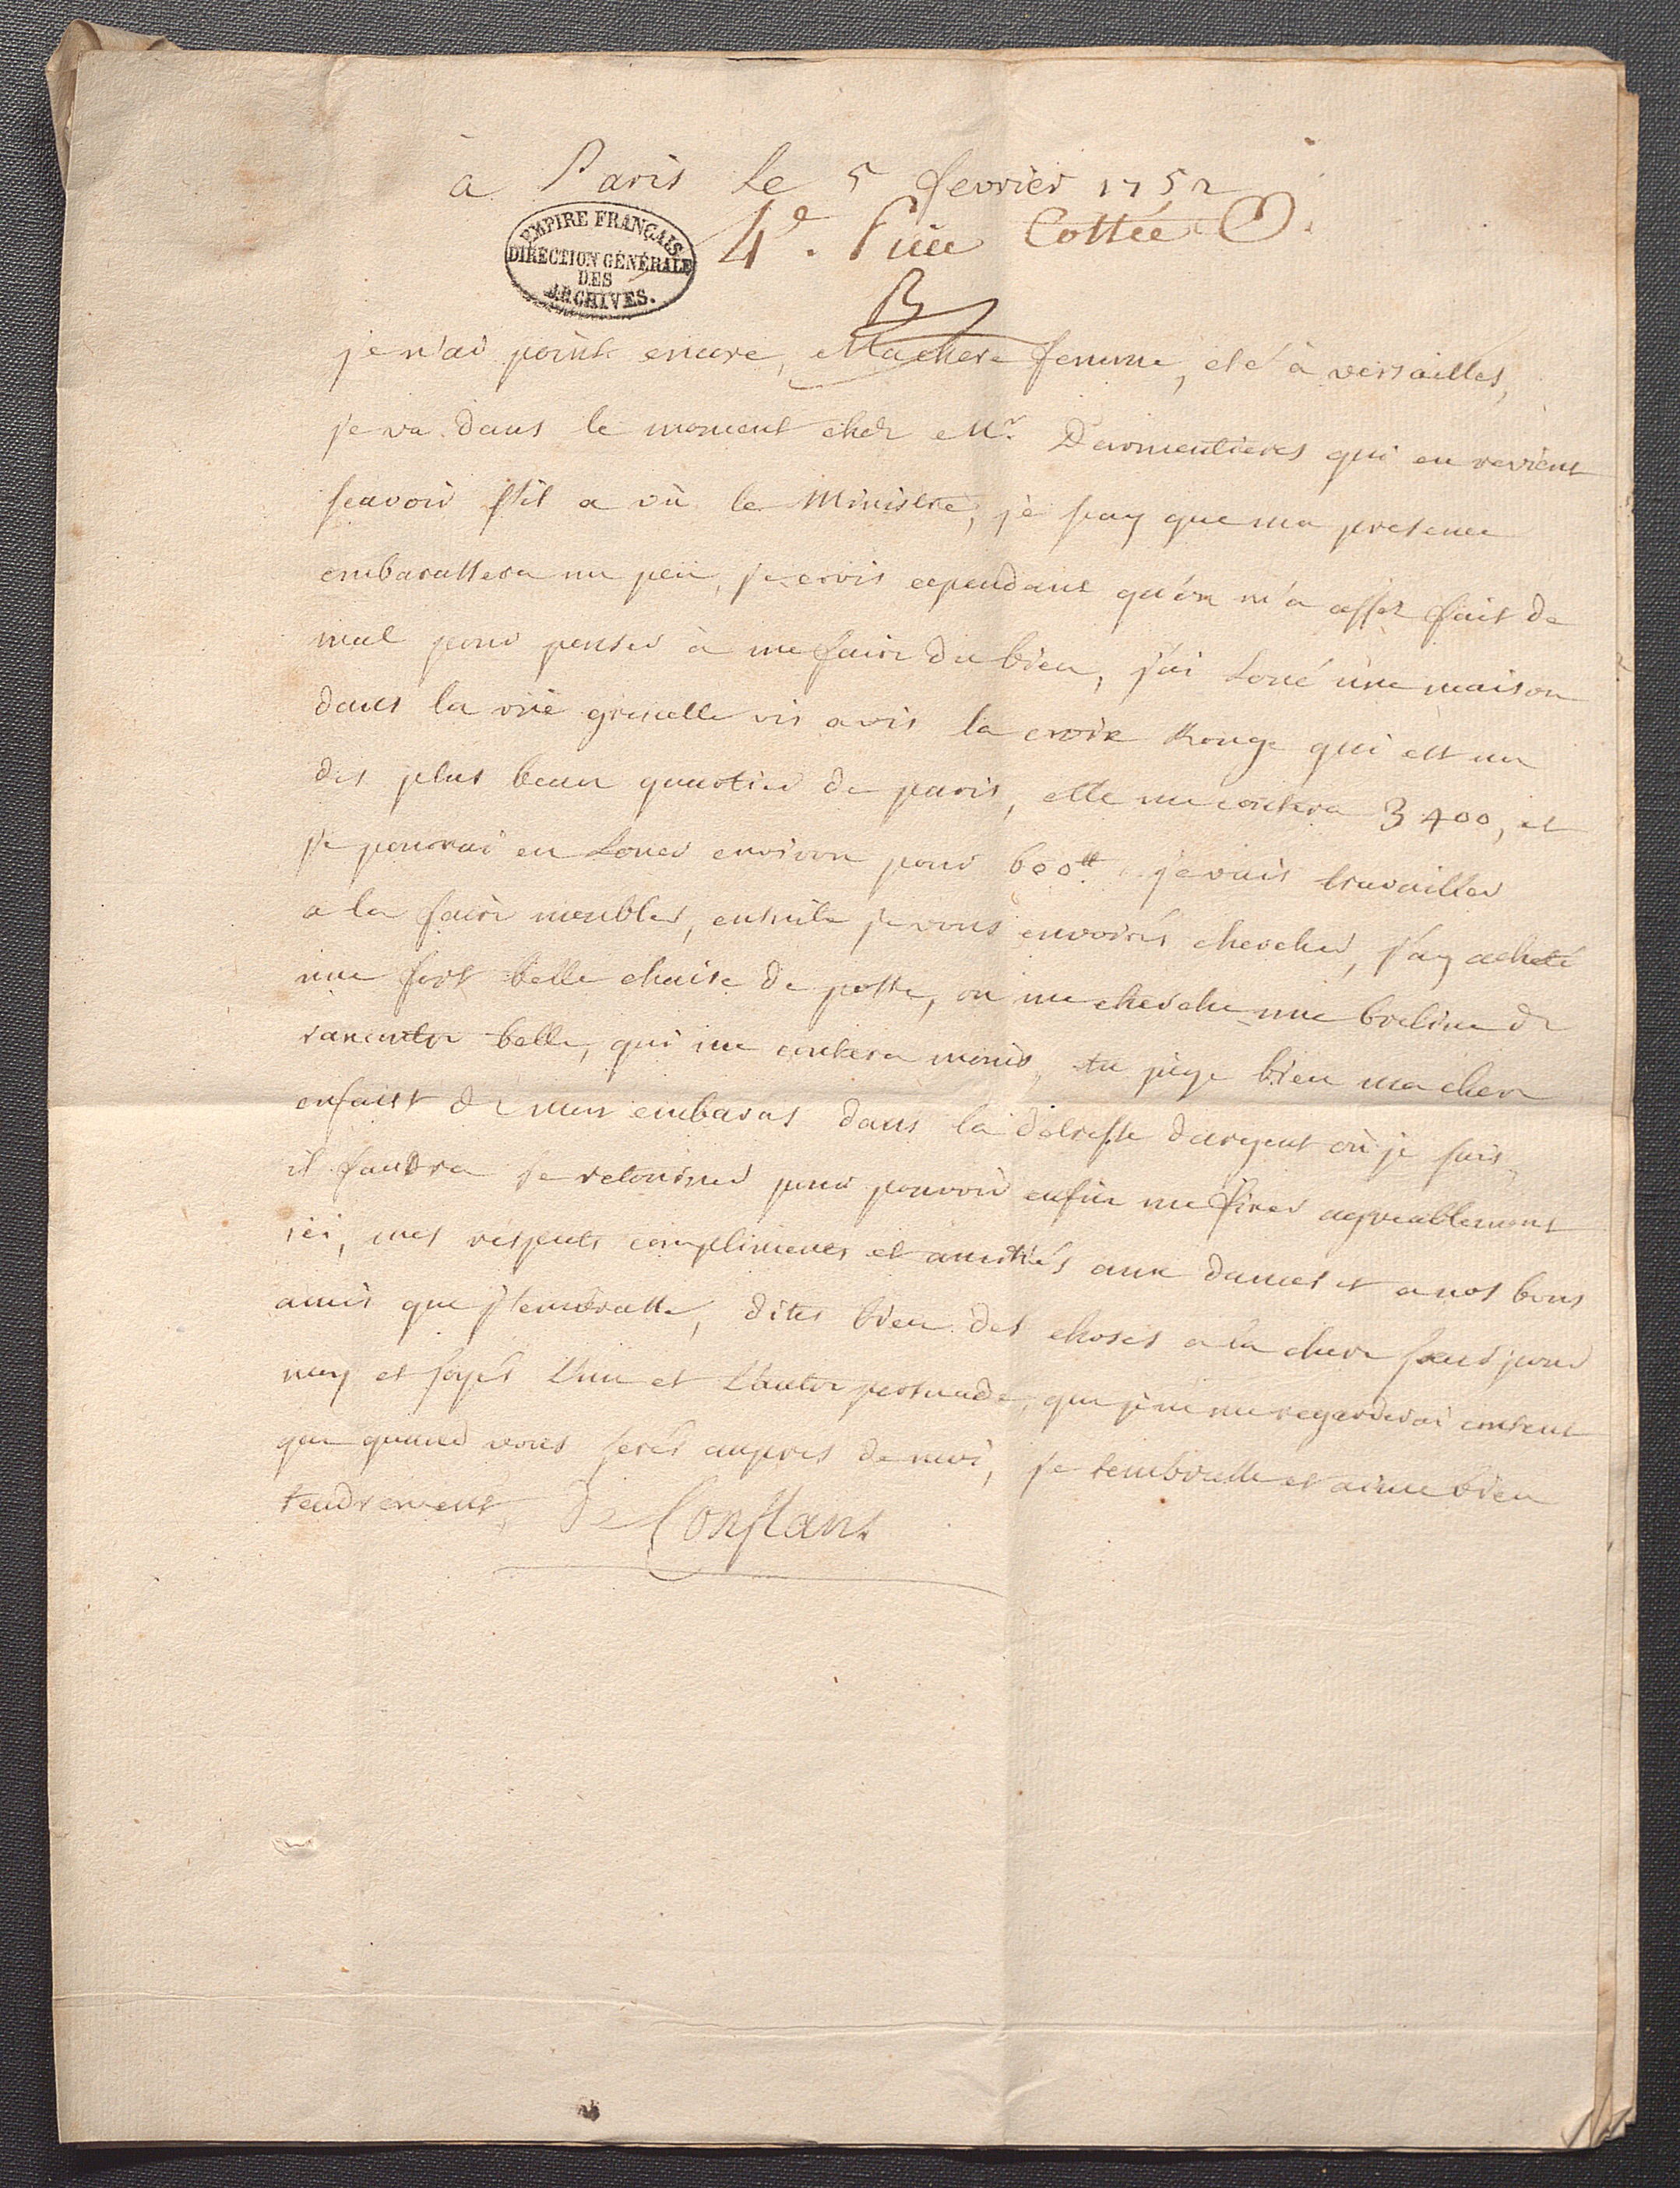 à Paris le 5 fevrier 1752
EMPIRE FRANÇAIS
DIRECTION GÉNÉRALE
DES
ARCHIVES.
4e. Piéce Cottée
je n'ai point encore, Ma chere femme, eté à versailles,
je va dans le moment chez Mr. Darmentieres qui en revient
scavoir s'il a vû le Ministre, je scay que ma presence
embarassera un peu, je crois cependant qu'on m'a assez fait de
mal pour penser à me faire du bien, j'ai Loué une maison
dans la rüe grenelle vis avis la croix Rouge qui est un
des plus beau quartier de paris, elle me coutera 3400, et
je pourai en Louer environ pour 600tt je vais travailler
a la faire meubler, ensuite je vous envoirés chercher, j'ay acheté
une fort belle chaise de poste, on me cherche une berline de
rencontre belle, qui me coutera moins, tu juge bien ma chere
enfaist de mon embaras dans la détresse dargent où je suis,
il faudra se retourner pour pouvoir enfin me fixer agreablement
ici, mes respects complimens et amitiés aux dames et a nos bons
amis que j'embrasse, dites bien des choses a la chere sœur pour
moy et soyés L'une et L'autre persuadé, que je ne me regarderai content
que quand vous serés aupres de moi, je t'embrasse et aime bien
tendrement, De Constant